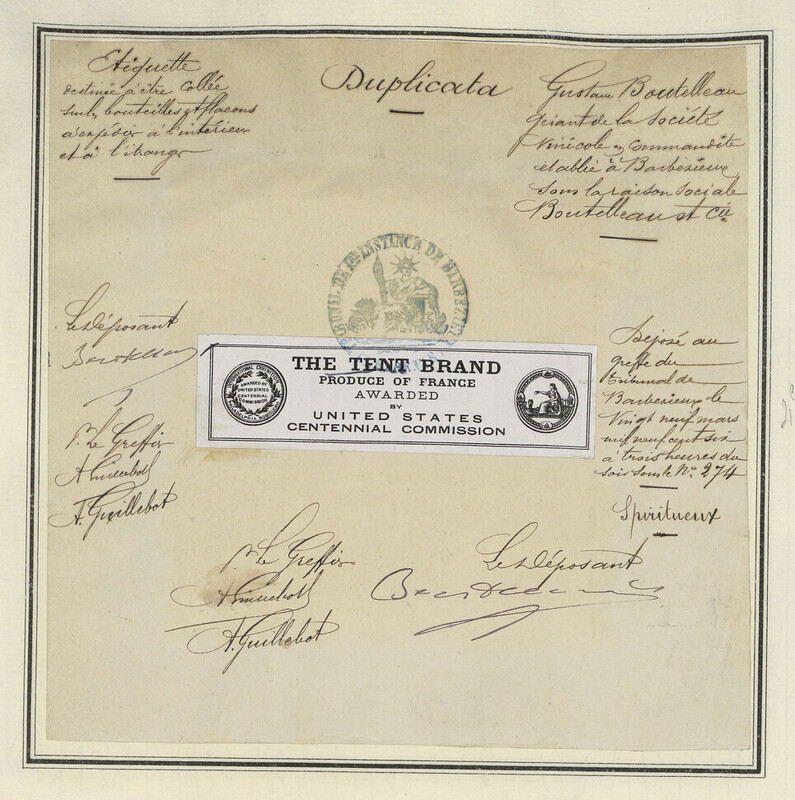 Etiquette
destinée à être collée
sur les bouteilles et flacons
à expédier à l'intérieur
et à l'étranger
Duplicata
Gustave Boutelleau
gérant de la Société
Vinicole en Commandite
établie à Barbezieux
sous la raison sociale
Boutelleau et Cie
TRIBUNAL DE 1ERE INSTANCE DE BARBEZIEUX
Le Déposant
THE TENT BRAND
PRODUCE OF FRANCE
AWARDED
BY
UNITED STATES
CENTENNIAL COMMISSION
INTERNATIONAL EXHIBITION
AWARDED BY
UNITED STATES
CENTENNIAL
COMMISSION
PHILADELPHIA
Déposé au
greffe du
tribunal de
Barbezieux le
Vingt neuf mars
mil neuf cent six
à trois heures du
soir sous le No. 274
Spiritueux
Le Greffier
A. Guillebot
Le Greffier
A. Guillebot
Le Déposant